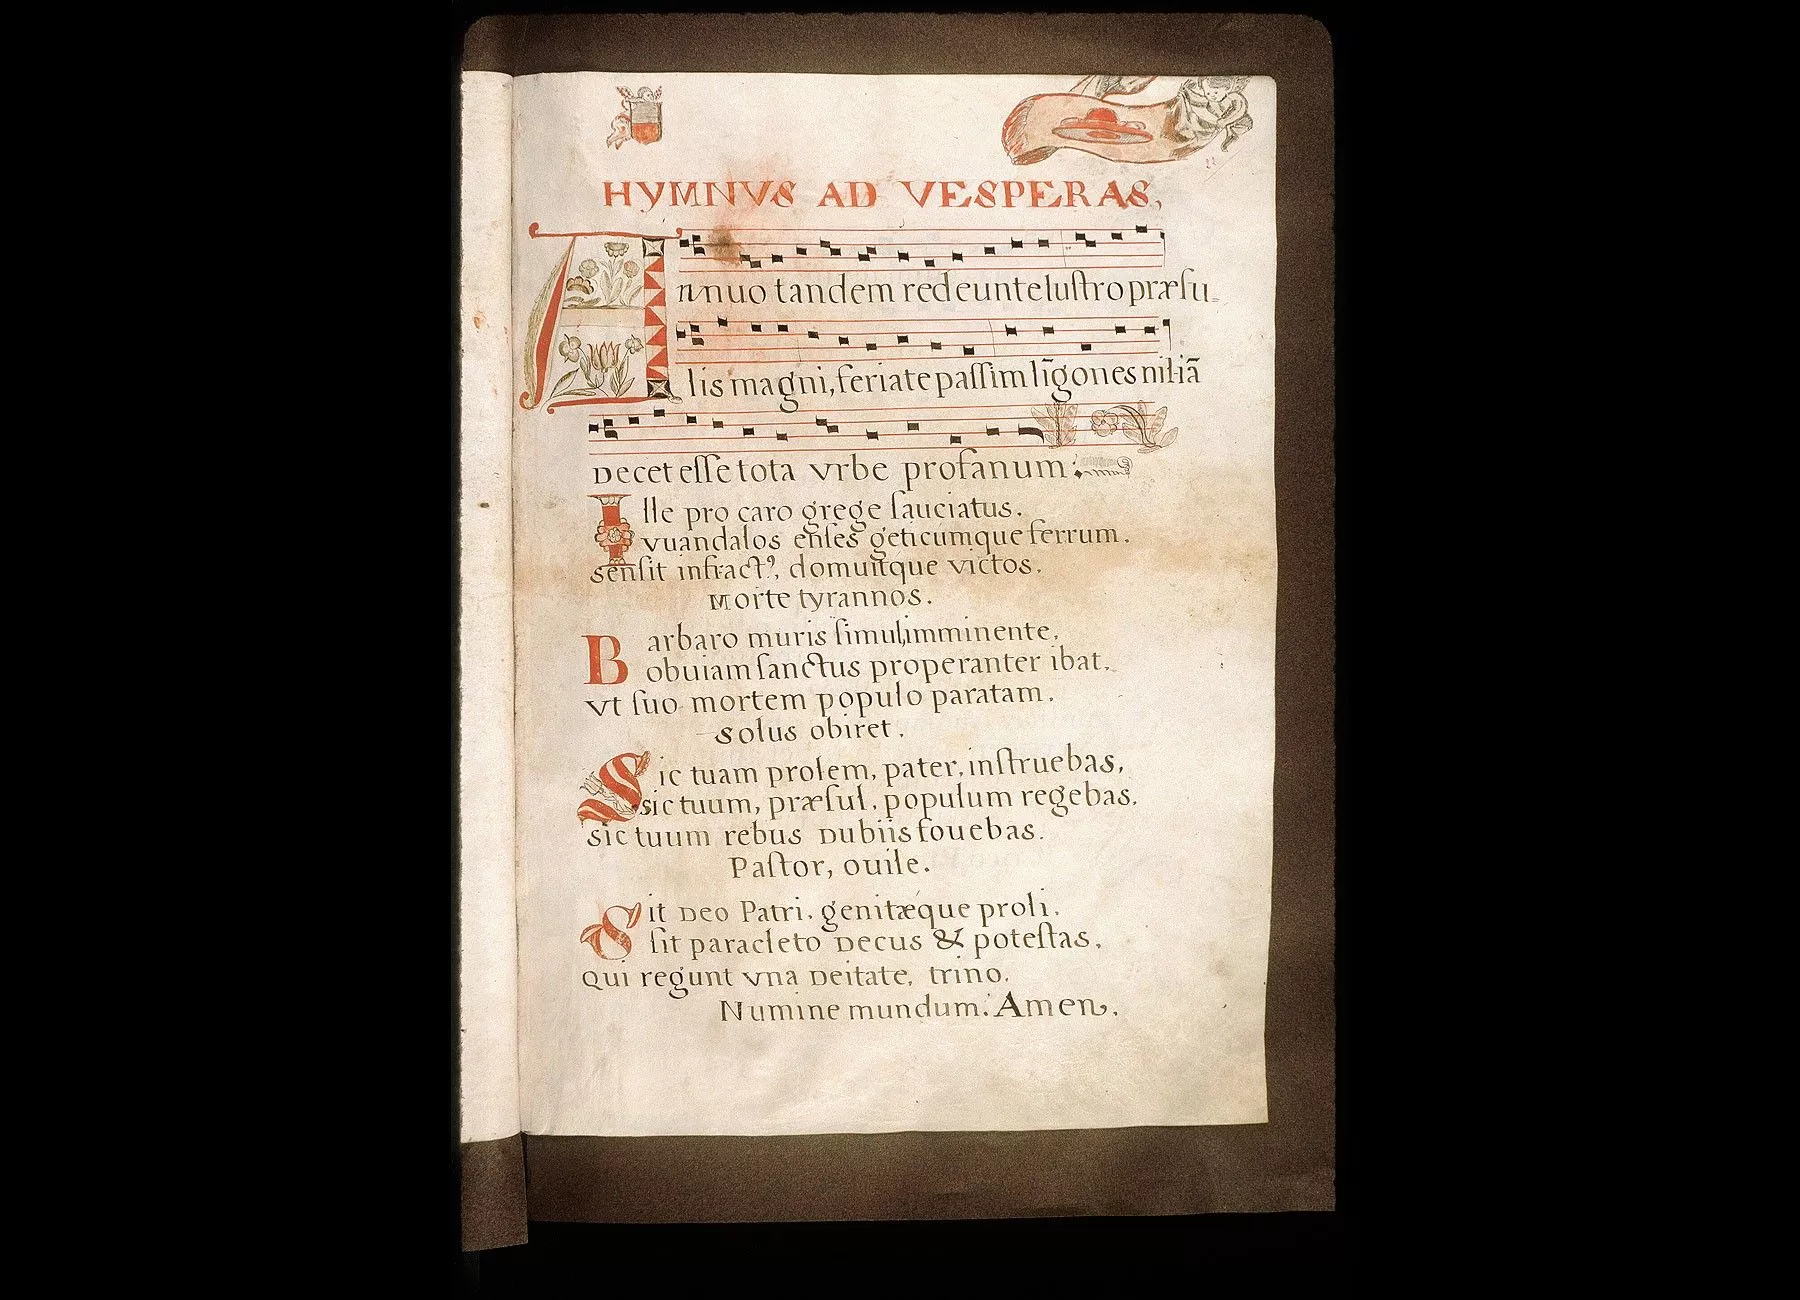 HYMNVS AD VESPERAS,
Annuo tandem redeunte luſtro præſu-
lis magni, feriate paſſim līgones nil iā
Decet eſſe tota vrbe profanum:
Ille pro caro grege ſauciatus.
vuandalos enſes geticumque ferrum.
senſit infractꝰ, domuitque victos.
Morte tyrannos.
Barbaro muris ſimul, imminente,
obuiam ſanctus properanter ibat,
vt ſuo mortem populo paratam.
solus obiret.
Sic tuam prolem, pater, inſtruebas,
sic tuum, præſul, populum regebas,
sic tuum rebus Dubiis fouebas.
Paſtor, ouile.
Sit Deo Patri, genitæque proli,
ſit paracleto Decus & poteſtas,
Qui regunt vna Deitate, trino.
Numine mundum. Amen.